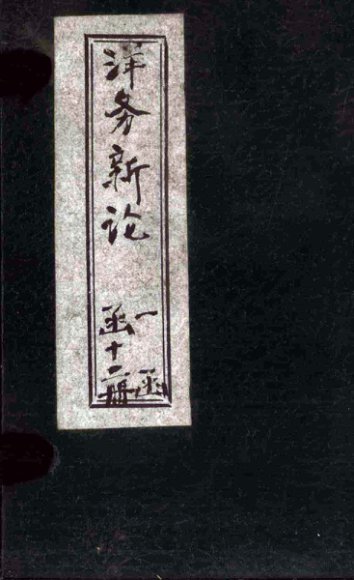 洋务新论
一函
函十二册